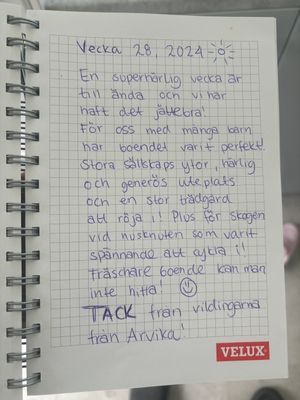 Vecka 28, 2024
En superhärlig vecka är
till ända och vi har
haft det jättebra!
För oss med många barn
har boendet varit perfekt!
Stora sällskaps ytor, härlig
och generös uteplats
och en stor trädgård
att röja i! Plus för skogen
vid husknuten som varit
spännande att cykla i!
Fräschare boende kan man
inte hitta!
TACK från vildingarna
från Arvika!
VELUX